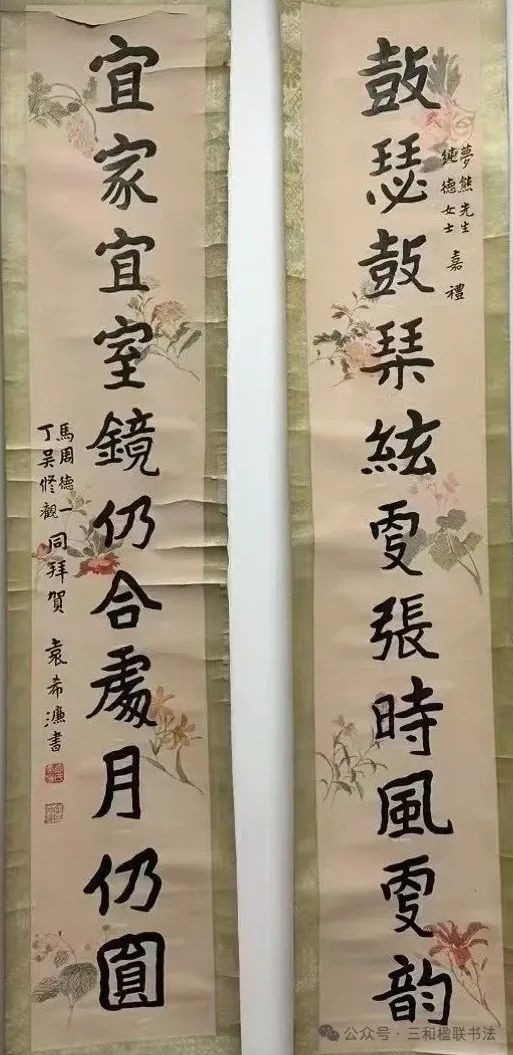 鼓瑟鼓琹絃更張時風更韵
夢熊先生
純德女士
嘉禮
宜家宜室鏡仍合處月仍圓
馬周德一
丁吳修觀
同拜賀
袁希濂書
公众号 · 三和楹联书法